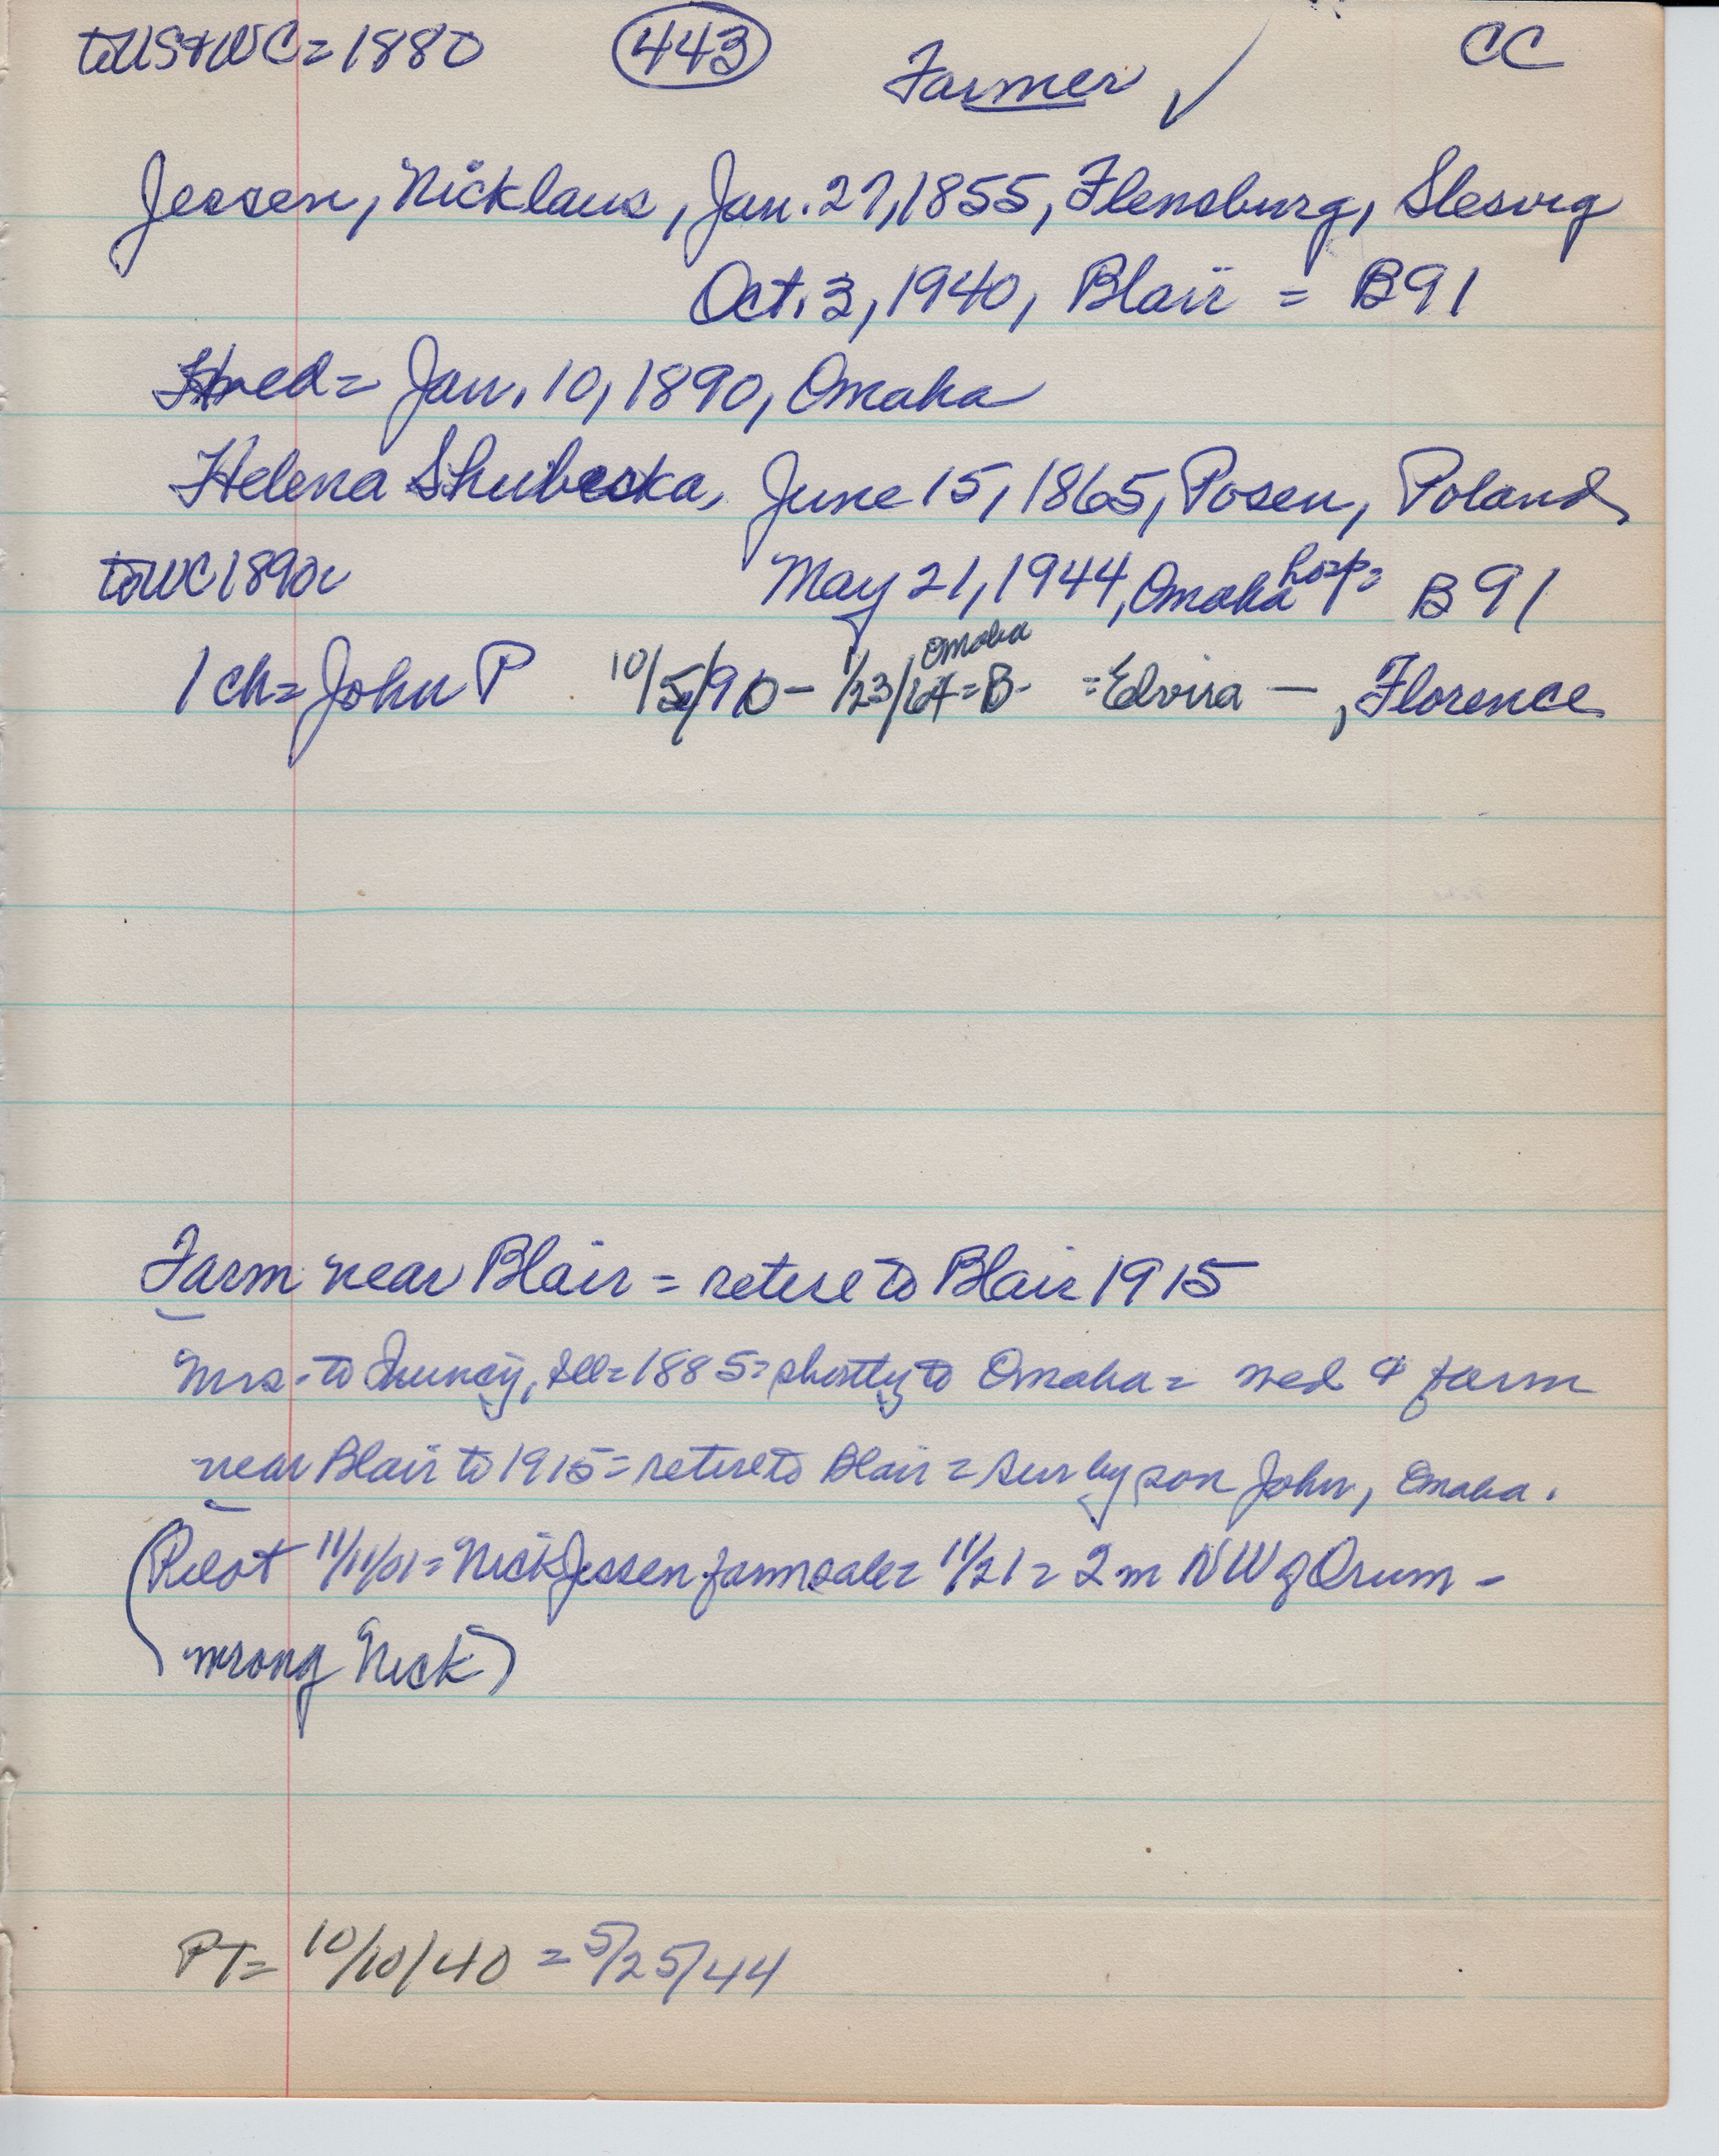 to US & WC = 1880 443 Farmer ✓ CC
Jessen, Nicklaus, Jan. 27, 1855, Flensburg, Slesvig
Oct. 3, 1940, Blair = B91
wed = Jan. 10, 1890, Omaha
Helena Shubeska, June 15, 1865, Posen, Poland
to WC 1890 May 21, 1944, Omaha hosp = B91
1 ch = John P 10/5/90 - 1/23/64 = B - Omaha = Elvira —, Florence
Farm near Blair = retire to Blair 1915
Mrs - to Quincy, Ill = 1885 = shortly to Omaha = wed & farm
near Blair to 1915 = retire to Blair = sur by son John, Omaha.
(Pilot 11/11/01 = Nick Jessen farm sale = 11/21 = 2 m NW of Orum -
wrong Nick)
PT = 10/10/40 = 5/25/44